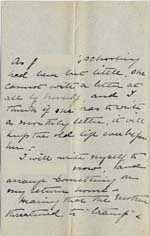 As f schooling
had been but little, she
cannot write a letter at
all by herself and I
think if she has to write
a monthly letter, it will
keep the old life ever before
her —
I will write myself to
now, and
arrange something on
my return home —
Hearing that the mother
threatened to "